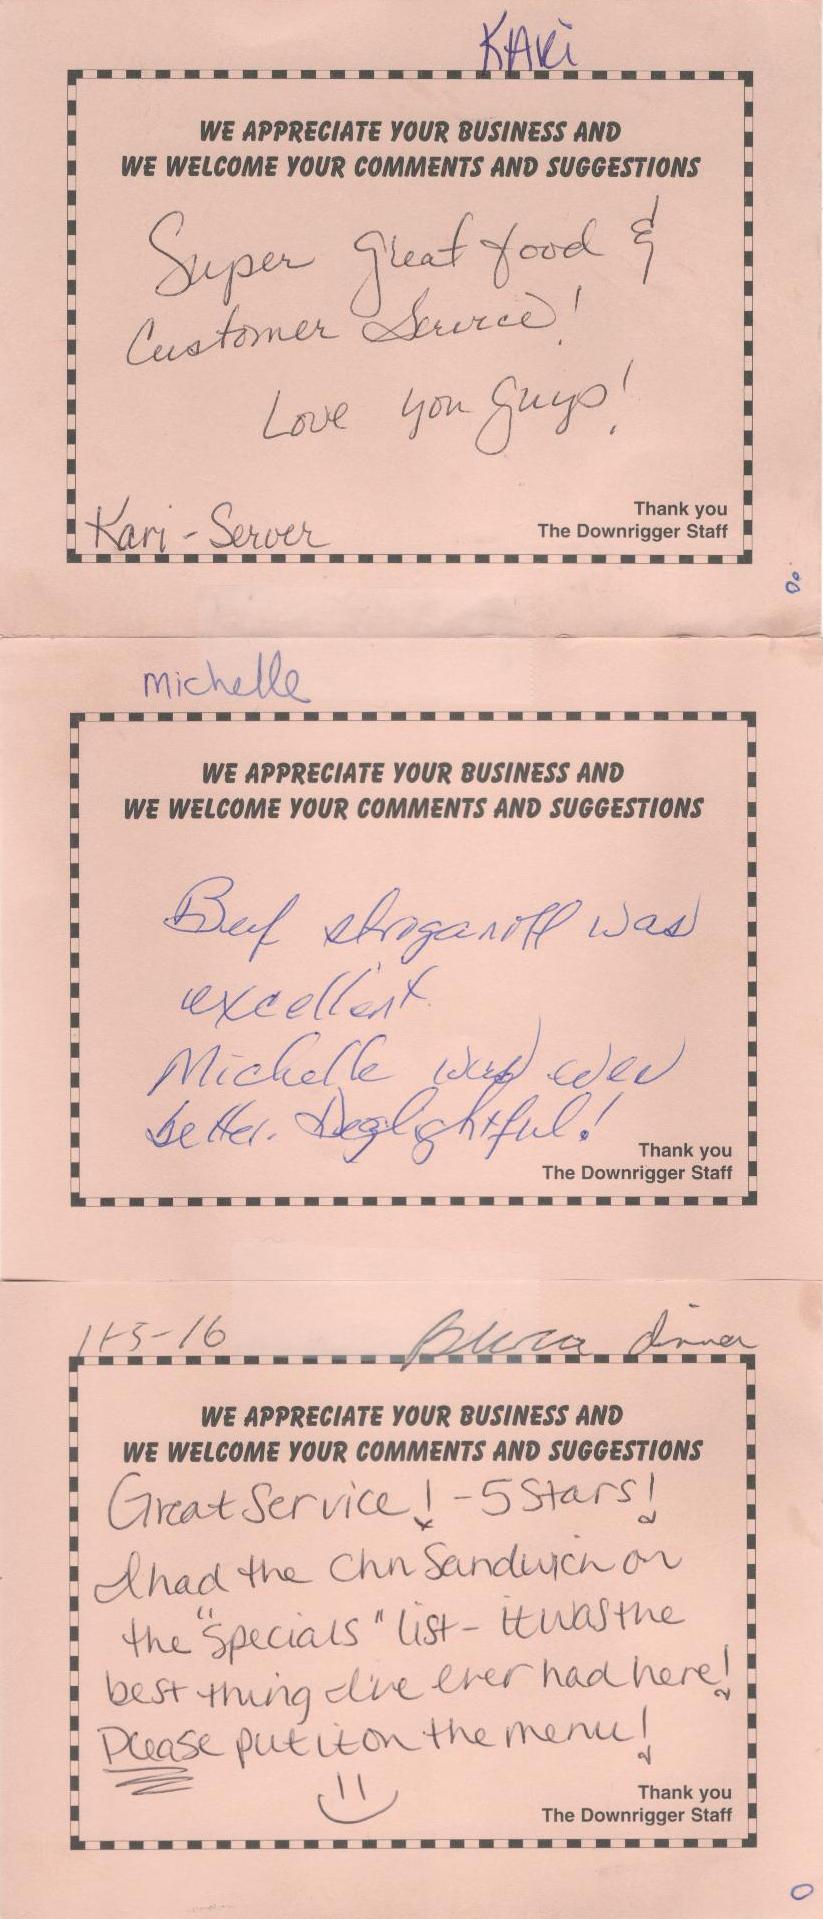 KARi
WE APPRECIATE YOUR BUSINESS AND
WE WELCOME YOUR COMMENTS AND SUGGESTIONS
Super great food &
Customer Service!
Love you guys!
Thank you
Kari - Server
The Downrigger Staff
michelle
WE APPRECIATE YOUR BUSINESS AND
WE WELCOME YOUR COMMENTS AND SUGGESTIONS
Beef stroganoff was
excellent.
Michelle was even
better. Deglightful!
Thank you
The Downrigger Staff
11-5-16 dinner
WE APPRECIATE YOUR BUSINESS AND
WE WELCOME YOUR COMMENTS AND SUGGESTIONS
Great Service! - 5 Stars!
I had the Chn Sandwich on
the "specials" list - it was the
best thing I've ever had here!
Please put it on the menu!
Thank you
The Downrigger Staff